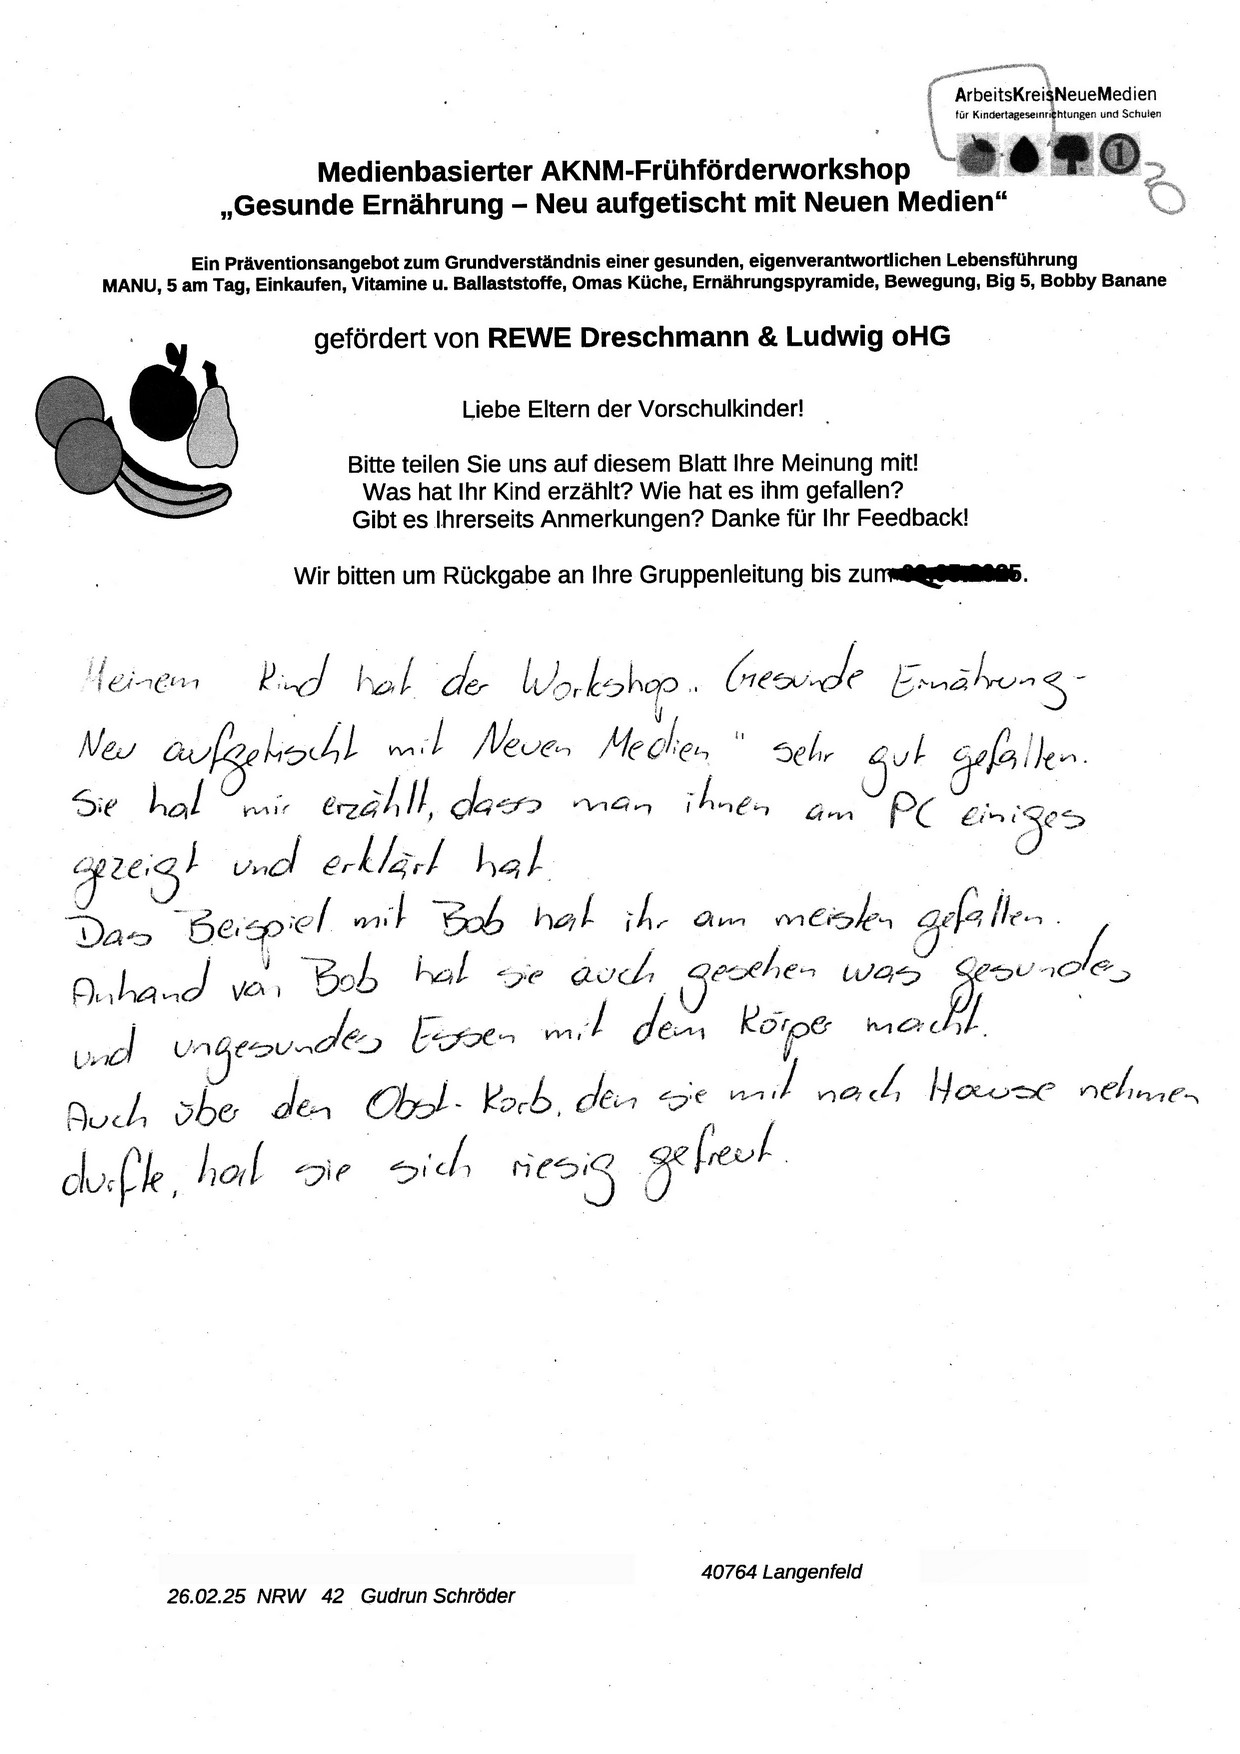 ArbeitsKreisNeueMedien
für Kindertageseinrichtungen und Schulen
1
Medienbasierter AKNM-Frühförderworkshop
„Gesunde Ernährung – Neu aufgetischt mit Neuen Medien“
Ein Präventionsangebot zum Grundverständnis einer gesunden, eigenverantwortlichen Lebensführung
MANU, 5 am Tag, Einkaufen, Vitamine u. Ballaststoffe, Omas Küche, Ernährungspyramide, Bewegung, Big 5, Bobby Banane
gefördert von REWE Dreschmann & Ludwig oHG
Liebe Eltern der Vorschulkinder!
Bitte teilen Sie uns auf diesem Blatt Ihre Meinung mit!
Was hat Ihr Kind erzählt? Wie hat es ihm gefallen?
Gibt es Ihrerseits Anmerkungen? Danke für Ihr Feedback!
Wir bitten um Rückgabe an Ihre Gruppenleitung bis zum 5.
Meinem Kind hat der Workshop „Gesunde Ernährung-
Neu aufgetischt mit Neuen Medien" sehr gut gefallen.
Sie hat mir erzählt, dass man ihnen am PC einiges
gezeigt und erklärt hat.
Das Beispiel mit Bob hat ihr am meisten gefallen.
Anhand von Bob hat sie auch gesehen was gesundes
und ungesundes Essen mit dem Körper macht.
Auch über den Obst-Korb, den sie mit nach Hause nehmen
durfte, hat sie sich riesig gefreut.
40764 Langenfeld
26.02.25 NRW 42 Gudrun Schröder